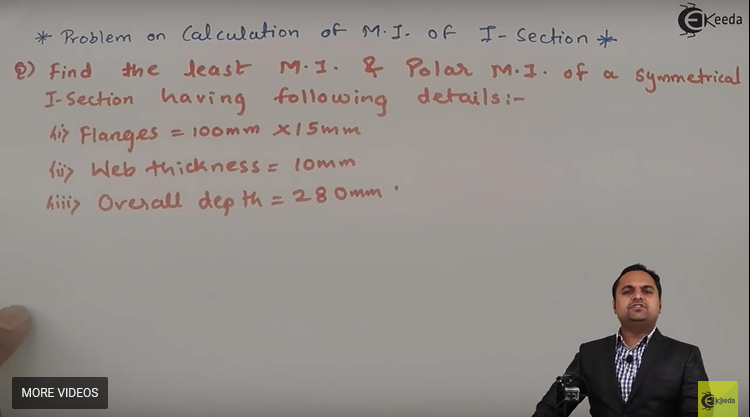 * Problem on Calculation of M.I. of I-Section *
Q) Find the least M.I. & Polar M.I. of a symmetrical
I-Section having following details:-
(i) Flanges = 100mm x 15mm
(ii) Web thickness = 10mm
(iii) Overall depth = 280mm.
EKeeda
MORE VIDEOS
EKeeda